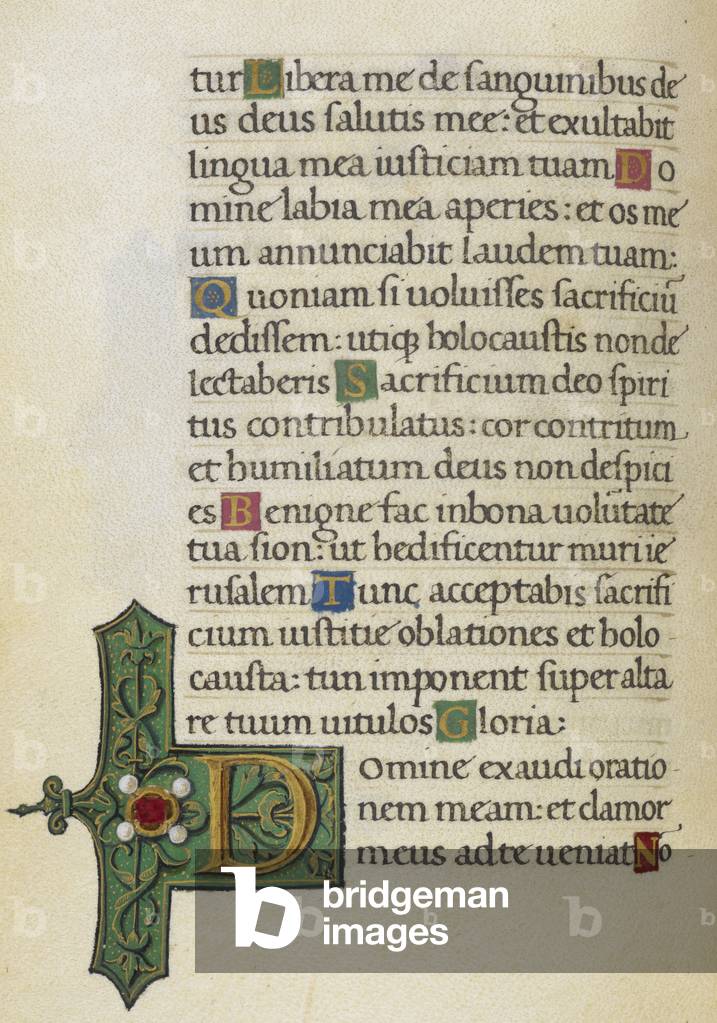 tur Libera me de sanguinibus de
us deus salutis mee: et exultabit
lingua mea iusticiam tuam Do
mine labia mea aperies: et os me
um annunciabit laudem tuam:
Quoniam si uoluisses sacrificiū
dedissem: utiqꝫ holocaustis non de
lectaberis Sacrificium deo spiri
tus contribulatus: cor contritum
et humiliatum deus non despici
es Benigne fac in bona uolūtate
tua sion: ut hedificentur muri ie
rusalem Tunc acceptabis sacrifi
cium iustitie oblationes et holo
causta: tun imponent super alta
re tuum uitulos Gloria:
Domine exaudi oratio
nem meam: et clamor
meus ad te ueniat No
b bridgeman
images